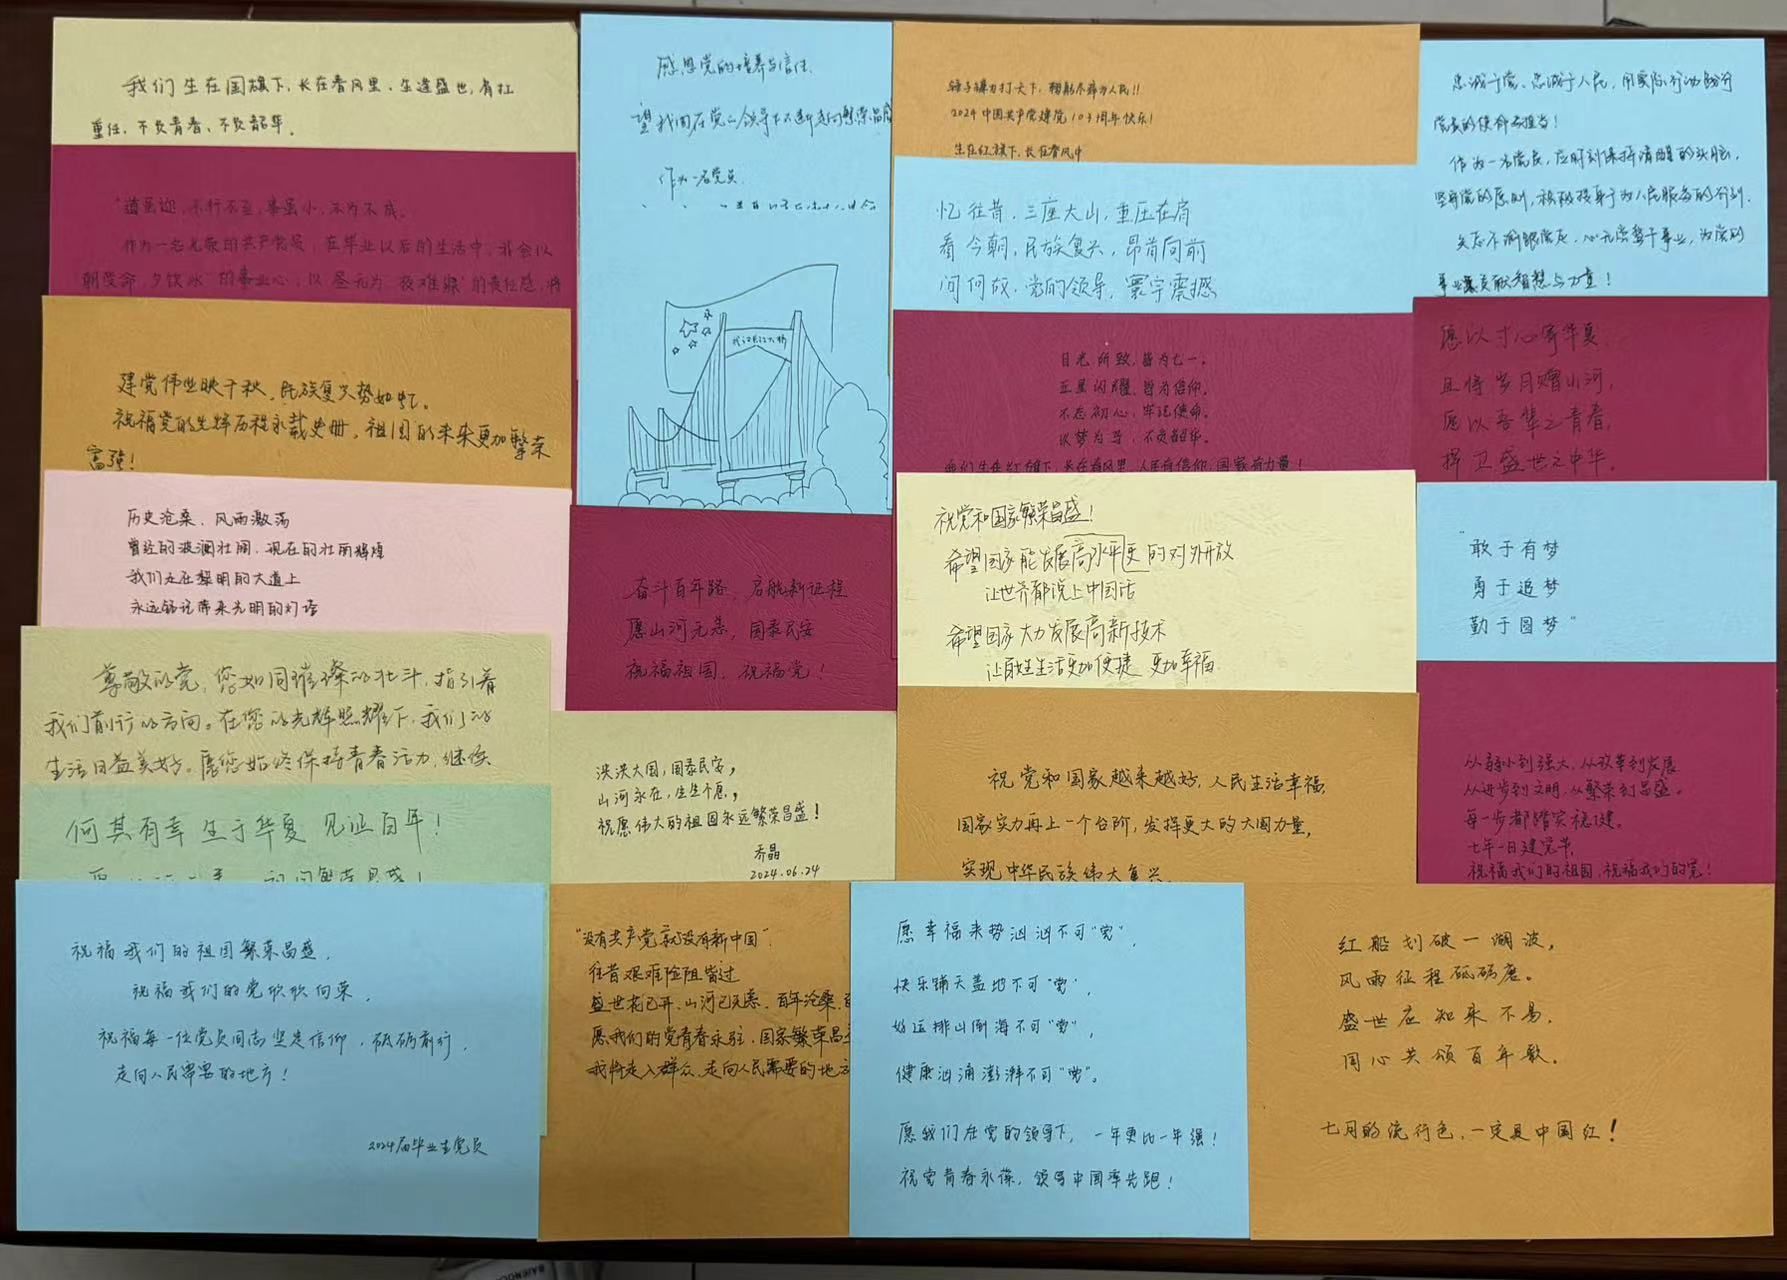 我们生在国旗下、长在春风里、生逢盛世,肩扛
重任、不负青春、不负韶华.
"道虽迩,不行不至,事虽小,不为不成.
作为一名光荣的共产党员,在毕业以后的生活中,我会以
朝受命 夕饮冰"的事业心,以"昼无为 夜难寐"的责任感,将
建党伟业映千秋,民族复兴势如虹.
祝福党的光辉历程永载史册,祖国的未来更加繁荣
富强!
历史沧桑、风雨激荡
曾经的波澜壮阔、现在的壮丽辉煌
我们走在黎明的大道上
永远铭记带来光明的灯塔
尊敬的党,您如同璀璨的北斗,指引着
我们前行的方向。在您的光辉照耀下,我们的
生活日益美好。愿您始终保持青春活力,继续
何其有幸 生于华夏 见证百年!
祝福我们的祖国繁荣昌盛,
祝福我们的党欣欣向荣,
祝福每一位党员同志坚定信仰,砥砺前行,
走向人民需要的地方!
2024届毕业生党员
感恩党的培养与信任.
望我国在党的领导下不断走向繁荣昌盛
作为一名党员
武汉长江大桥
奋斗百年路,启航新征程
愿山河无恙,国泰民安
祝福祖国,祝福党!
泱泱大国,国泰民安,
山河永在,生生不息,
祝愿伟大的祖国永远繁荣昌盛!
乔晶
2024.06.24
"没有共产党就没有新中国".
往昔艰难险阻皆过
盛世花已开、山河已无恙、百年沧桑、
愿我们的党青春永驻、国家繁荣昌
我将走入群众、走向人民需要的地方
锤子镰刀打天下,鞠躬尽瘁为人民!!
2024中国共产党建党103周年快乐!
生在红旗下,长在春风中
忆往昔,三座大山,重压在肩
看今朝,民族复兴,昂首向前
问何故,党的领导,寰宇震撼
目光所致,皆为七一,
五星闪耀,皆为信仰.
不忘初心,牢记使命.
以梦为马,不负韶华.
我们生在红旗下,长在春风里,人民有信仰,国家有力量!
祝党和国家繁荣昌盛!
希望国家能发展高水平更的对外开放
让世界都说上中国话
希望国家大力发展高新技术
让百姓生活更加便捷 更加幸福
祝党和国家越来越好,人民生活幸福,
国家实力再上一个台阶,发挥更大的大国力量,
实现中华民族伟大复兴.
愿幸福来势汹汹不可"党",
快乐铺天盖地不可"党",
好运排山倒海不可"党",
健康汹涌澎湃不可"党"。
愿我们在党的领导下,一年更比一年强!
祝党青春永葆,领导中国率先跑!
忠诚于党、忠诚于人民,用实际行动践行
党员的使命与担当!
作为一名党员,应时刻保持清醒的头脑,
坚守党的原则,积极投身于为人民服务的行列.
矢志不渝跟党走,心无旁骛干事业,为党的
事业贡献智慧与力量!
愿以寸心寄华夏,
且将岁月赠山河,
愿以吾辈之青春,
捍卫盛世之中华.
"敢于有梦
勇于追梦
勤于圆梦"
从弱小到强大,从改革到发展
从进步到文明,从繁荣到昌盛。
每一步都踏实稳健。
七年一日建党节,
祝福我们的祖国,祝福我们的党!
红船划破一湖波,
风雨征程砥砺磨。
盛世应知来不易,
同心共颂百年歌。
七月的流行色,一定是中国红!